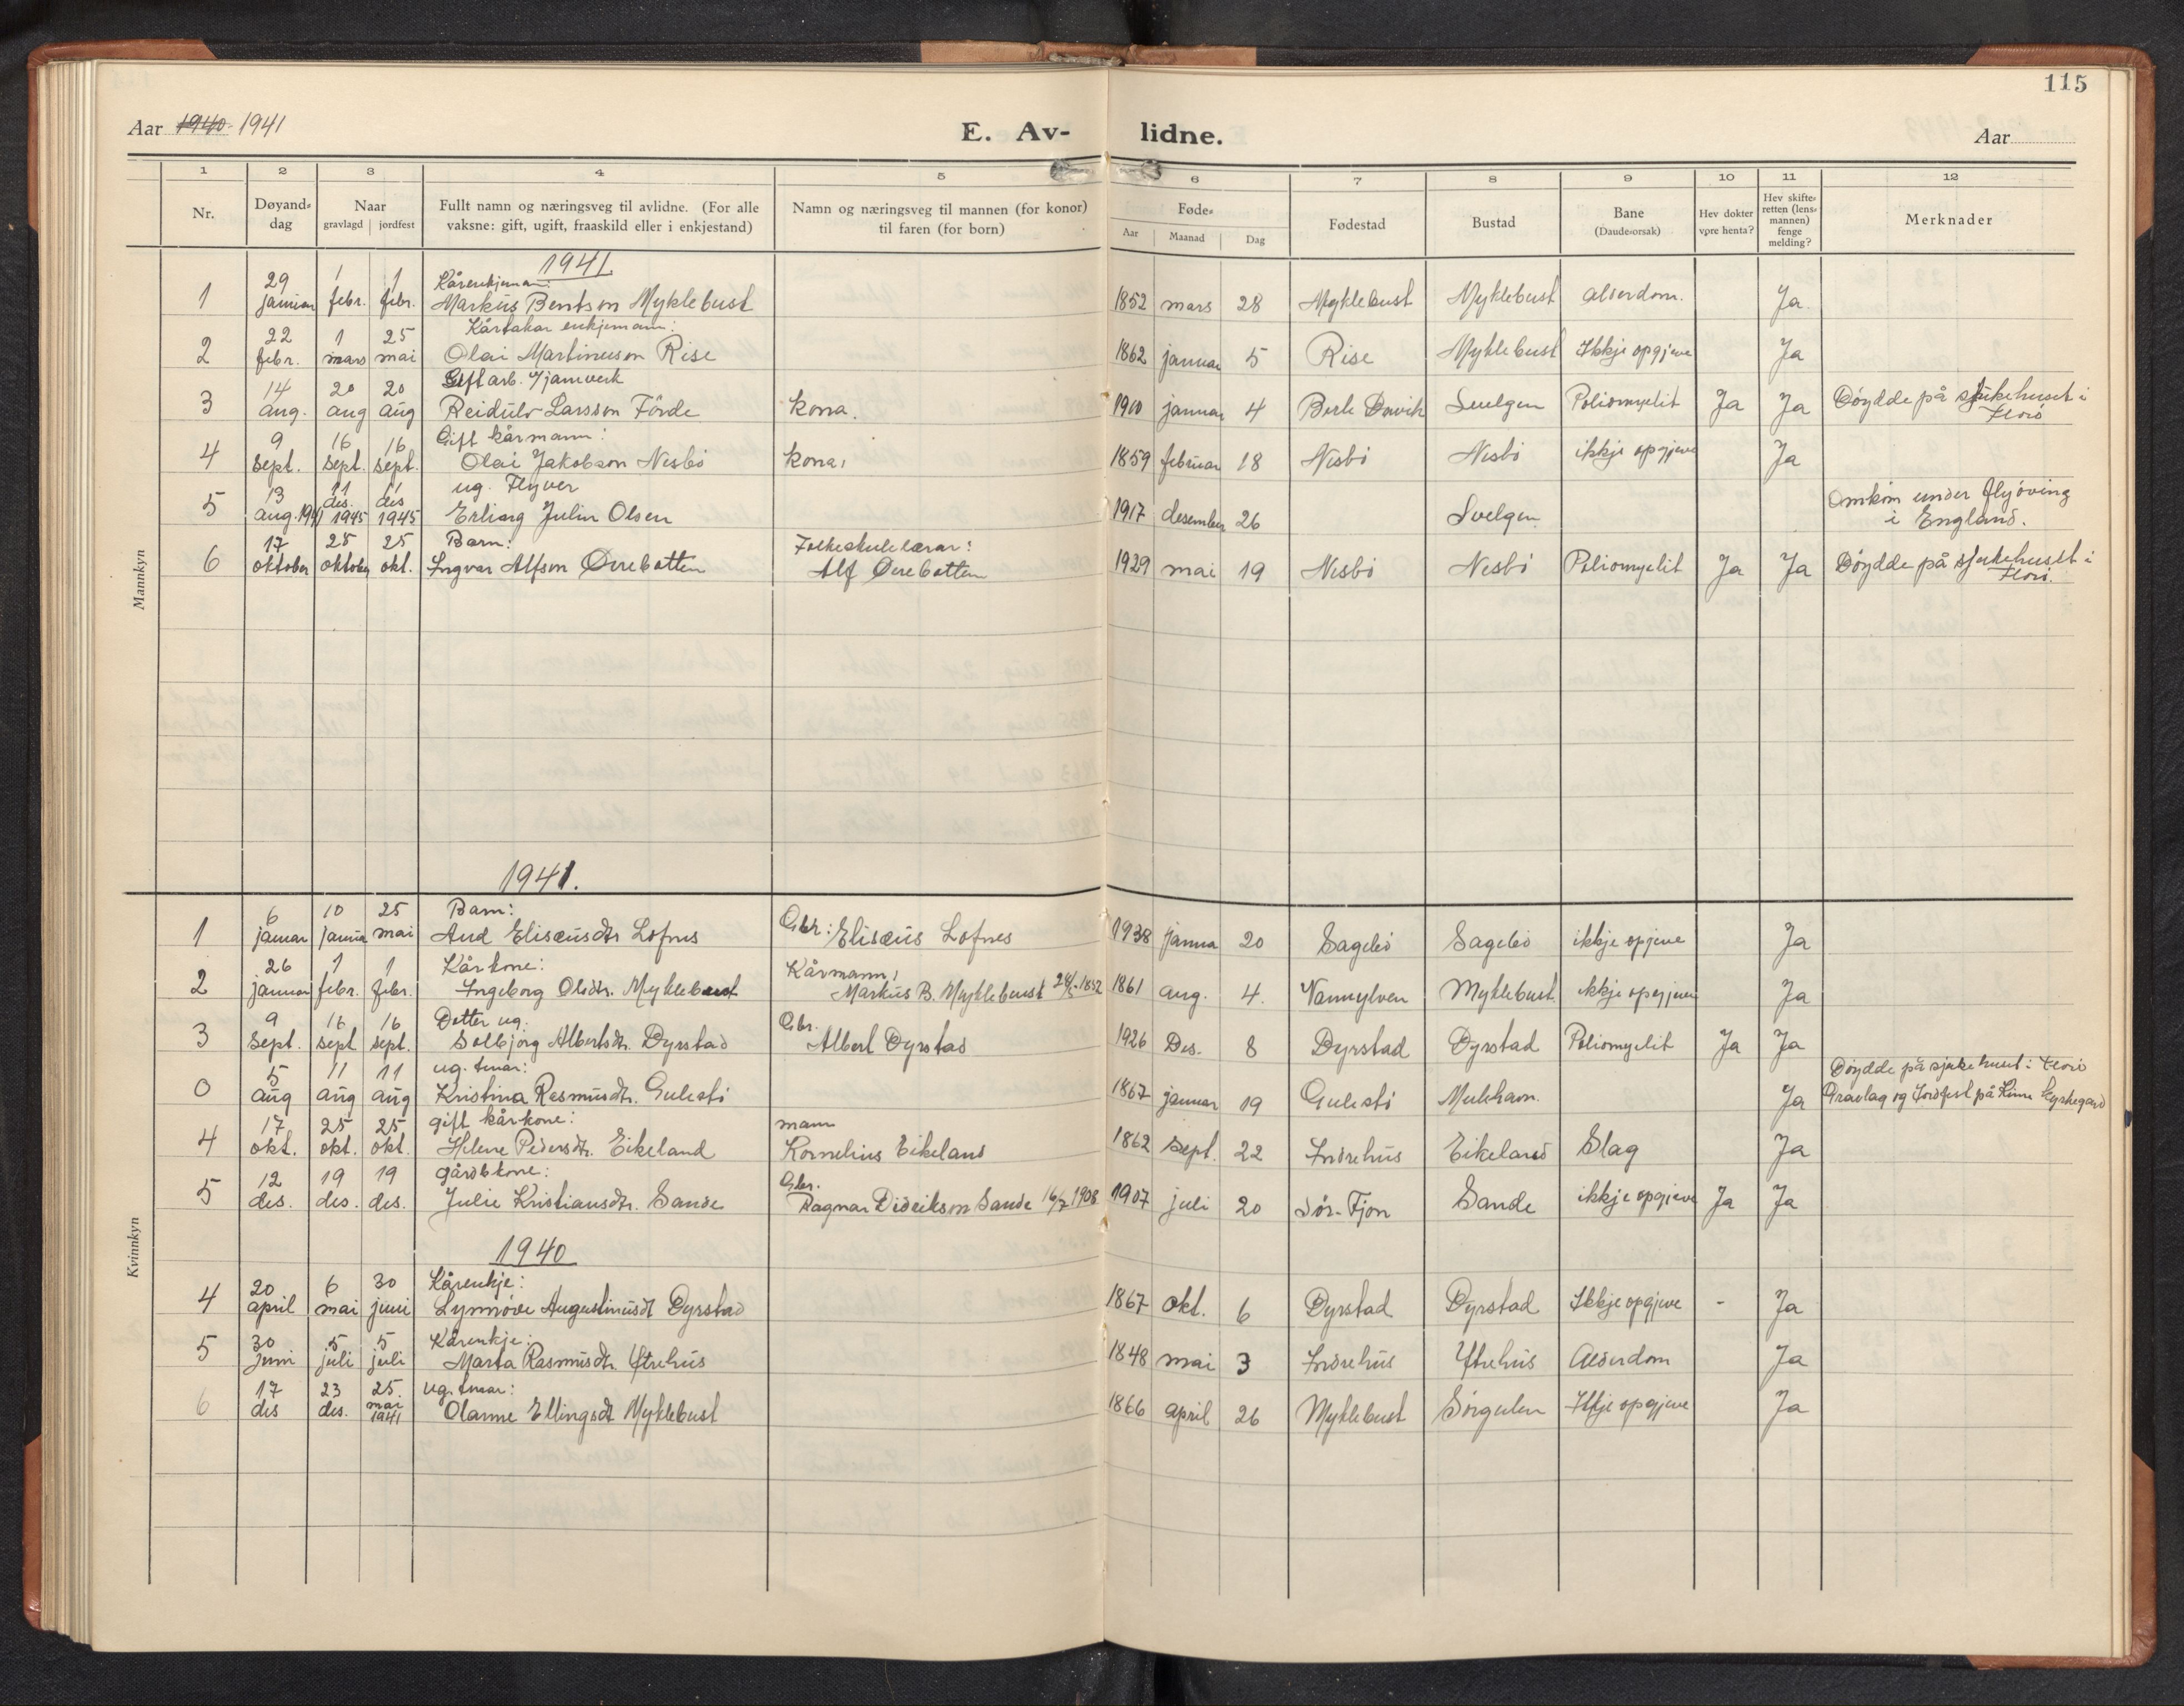 115
Aar 1940. 1941
E. Av- lidne.
Aar
1 2 3 4 5 6 7 8 9 10 11 12
Nr.
Døyand-dag
Naar
gravlagd | jordfest
Fullt namn og næringsveg til avlidne. (For alle
vaksne: gift, ugift, fraaskild eller i enkjestand)
Namn og næringsveg til mannen (for konor)
til faren (for born)
Føde-
Aar | Maanad | Dag
Fødestad
Bustad
Bane
(Daudsorsak)
Hev dokter
vore henta?
Hev skifte-
retten (lens-
mannen)
fenge
melding?
Merknader
Mannkyn
1941
29 1 1 Kårenkjemann:
1 januar febr. febr. Markus Bentson Myklebust 1852 mars 28 Myklebust Myklebust alderdom. Ja
22 1 25 Kårtakar enkjemann:
2 febr. mars mai Olai Martinuson Rise 1862 januar 5 Rise Myklebust Ikkje opgjeve Ja
14 20 20 Gift arb. v/jarnverk
3 aug. aug aug Reidulv Larsson Förde kona. 1900 januar 4 Berle Davik Svelgen Poliomyelit Ja Ja Döydde på sjukehuset i
Florö
9 16 16 Gift kårmann:
4 sept. sept. sept. Olai Jakobson Nesbö kona, 1859 februar 18 Nesbö Nesbö ikkje opgjeve Ja
13 11 11 ug. Flyver
5 aug. 1941 des. 1945 des 1945 Erling Julin Olsen 1917 desember 26 Svelgen Omkom under flyöving
i England.
17 25 25 Barn: Folkeskulelærar:
6 oktober oktober okt. Ingvar Alfson Övrebotten Alf Övrebotten 1939 mai 19 Nesbö Nesbö Poliomyelit Ja Ja Döydde på sjukehuset i
Florö.
Kvinnkyn
1941.
6 10 25 Barn:
1 januar janua mai Aud Elisæusdtr Lofnes Gbr: Elisæus Lofnes 1938 janua 20 Sagebö Sagebö ikkje opjeve Ja
26 1 1 Kårkone: Kårmann,
2 januar febr. febr. Ingeborg Olsdtr. Myklebust Markus B. Myklebust 28/3-1852 1861 aug. 4. Vannylven Myklebust ikkje opgjeve Ja
9 16 16 Dotter ug. Gbr.
3 sept. sept sept. Solbjörg Albertsdtr. Dyrstad Albert Dyrstad 1926 Des. 8 Dyrstad Dyrstad Poliomyelit Ja Ja
5 11 11 ug. tenar: Döydde på sjukehuset i Florö
0 aug aug aug Kristina Rasmusdtr. Gulestö 1867 januar 19 Gulestö Mulehavn. Ja Gravlag og Jordfest på Kinn kyrkegard
17 25 25 gift kårkone: mann
4 okt. okt. okt. Helene Pedersdtr. Eikeland Kornelius Eikeland 1862 sept. 22 Indrehus Eikeland Slag Ja
12 19 19 gårdbkone: Gbr.
5 des. des. des. Julie Kristiansdtr. Sande Ragnar Didrikson Sande 16/7 1908 1907 juli 20 Sör-Fjon Sande ikkje opgjeve Ja Ja
1940
20 6 30 Kårenkje:
4 april mai juni Synnöve Augustinusdt Dyrstad 1867 okt. 6 Dyrstad Dyrstad Ikkje opgjeve - Ja
30 5 5 Kårenkje:
5 juni juli juli Marta Rasmusdtr. Ytrehus 1848 mai 3 Indrehus Ytrehus Alderdom Ja
17 23 25. ug. tenar:
6 des des. mai 1941 Olanne Ellingsdt Myklebust 1866 april 26 Myklebust Sörgulen Ikkje opgjeve Ja